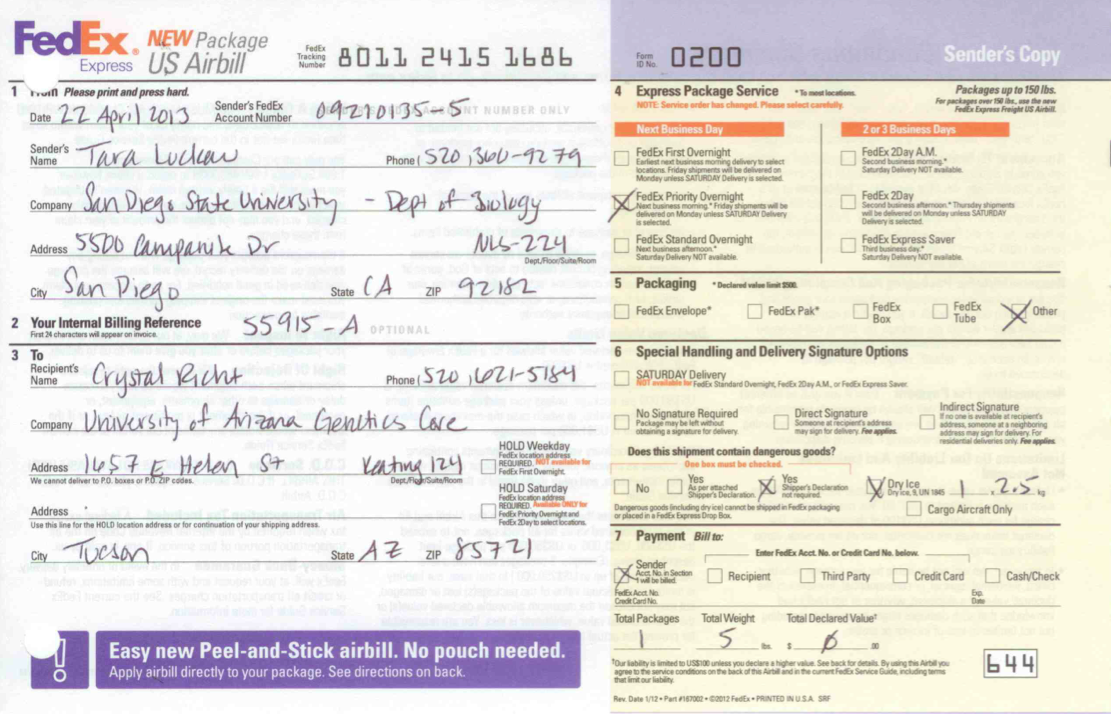 FedEx® NEW Package
Express US Airbill
FedEx Tracking Number 8011 2415 1686
1 From Please print and press hard.
Date 22 April 2013 Sender's FedEx Account Number 092101135-5
ACCOUNT NUMBER ONLY
Sender's Name Tara Luckau Phone (520) 360-9279
Company San Diego State University - Dept of Biology
Address 5500 Campanile Dr NLS-224
Dept./Floor/Suite/Room
City San Diego State CA ZIP 92182
2 Your Internal Billing Reference 55915-A OPTIONAL
First 24 characters will appear on invoice.
3 To
Recipient's Name Crystal Richt Phone (520) 621-5184
Company University of Arizona Genetics Core
Address 1657 E Helen St Keating 124
We cannot deliver to P.O. boxes or P.O. ZIP codes. Dept./Floor/Suite/Room
HOLD Weekday
FedEx location address
REQUIRED. NOT available for
FedEx First Overnight.
HOLD Saturday
FedEx location address
REQUIRED. Available ONLY for
FedEx Priority Overnight and
FedEx 2Day to select locations.
Address
Use this line for the HOLD location address or for continuation of your shipping address.
City Tucson State AZ ZIP 85721
Easy new Peel-and-Stick airbill. No pouch needed.
Apply airbill directly to your package. See directions on back.
Form ID No. 0200 Sender's Copy
4 Express Package Service * To most locations. Packages up to 150 lbs.
NOTE: Service order has changed. Please select carefully. For packages over 150 lbs., use the new
FedEx Express Freight US Airbill.
Next Business Day
FedEx First Overnight
Earliest next business morning delivery to select
locations. Friday shipments will be delivered on
Monday unless SATURDAY Delivery is selected.
X FedEx Priority Overnight
Next business morning.* Friday shipments will be
delivered on Monday unless SATURDAY Delivery
is selected.
FedEx Standard Overnight
Next business afternoon.*
Saturday Delivery NOT available.
2 or 3 Business Days
FedEx 2Day A.M.
Second business morning.*
Saturday Delivery NOT available.
FedEx 2Day
Second business afternoon.* Thursday shipments
will be delivered on Monday unless SATURDAY
Delivery is selected.
FedEx Express Saver
Third business day.*
Saturday Delivery NOT available.
5 Packaging * Declared value limit $500.
FedEx Envelope* FedEx Pak* FedEx Box FedEx Tube X Other
6 Special Handling and Delivery Signature Options
SATURDAY Delivery
NOT available for FedEx Standard Overnight, FedEx 2Day A.M., or FedEx Express Saver.
No Signature Required
Package may be left without
obtaining a signature for delivery.
Direct Signature
Someone at recipient's address
may sign for delivery. Fee applies.
Indirect Signature
If no one is available at recipient's
address, someone at a neighboring
address may sign for delivery. For
residential deliveries only. Fee applies.
Does this shipment contain dangerous goods?
One box must be checked.
No
Yes
As per attached
Shipper's Declaration.
X Yes
Shipper's Declaration
not required.
X Dry Ice
Dry Ice, 9, UN 1845 1 2.5 kg
Dangerous goods (including dry ice) cannot be shipped in FedEx packaging
or placed in a FedEx Express Drop Box.
Cargo Aircraft Only
7 Payment Bill to:
Enter FedEx Acct. No. or Credit Card No. below.
X Sender
Acct. No. in Section
1 will be billed.
Recipient Third Party Credit Card Cash/Check
FedEx Acct. No.
Credit Card No. Exp. Date
Total Packages Total Weight Total Declared Value‡
1 5 lbs. $ 0 .00
‡Our liability is limited to US$100 unless you declare a higher value. See back for details. By using this Airbill you
agree to the service conditions on the back of this Airbill and in the current FedEx Service Guide, including terms
that limit our liability.
644
Rev. Date 1/12 • Part #167002 • ©2012 FedEx • PRINTED IN U.S.A. SRF